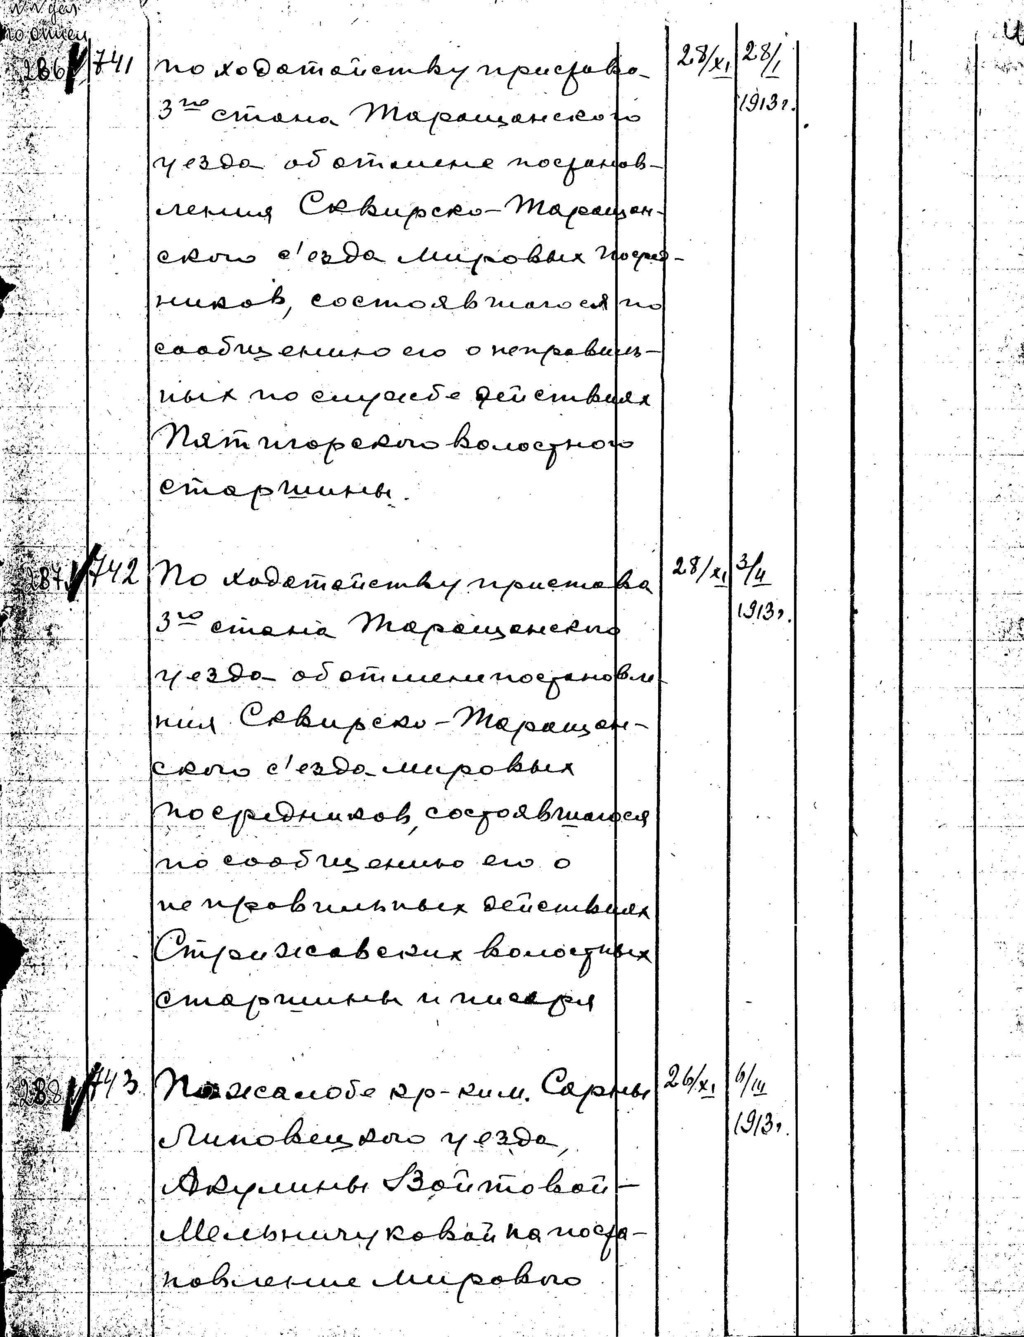 №№ дел
по описи
286 741 По ходатайству пристава 28/XI 28/I
3го стана Таращанского 1913 г.
уезда об отмене постанов-
ления Сквирско-Таращан-
ского с'езда мировых посред-
ников, состоявшагося по
сообщению его о неправиль-
ных по службе действиях
Пятигорского волостного
старшины.
287 742 По ходатайству пристава 28/XI 3/II
3го стана Таращанского 1913 г.
уезда об отмене постановле-
ния Сквирско-Таращан-
ского с'езда мировых
посредников, состоявшагося
по сообщению его о
неправильных действиях
Стрижавских волостных
старшины и писаря
288 743 По жалобе кр-ки м. Сарны 26/XI 6/III
Липовецкого уезда, 1913 г.
Акулины Войтовой-
Мельничуковой на поста-
новление мирового